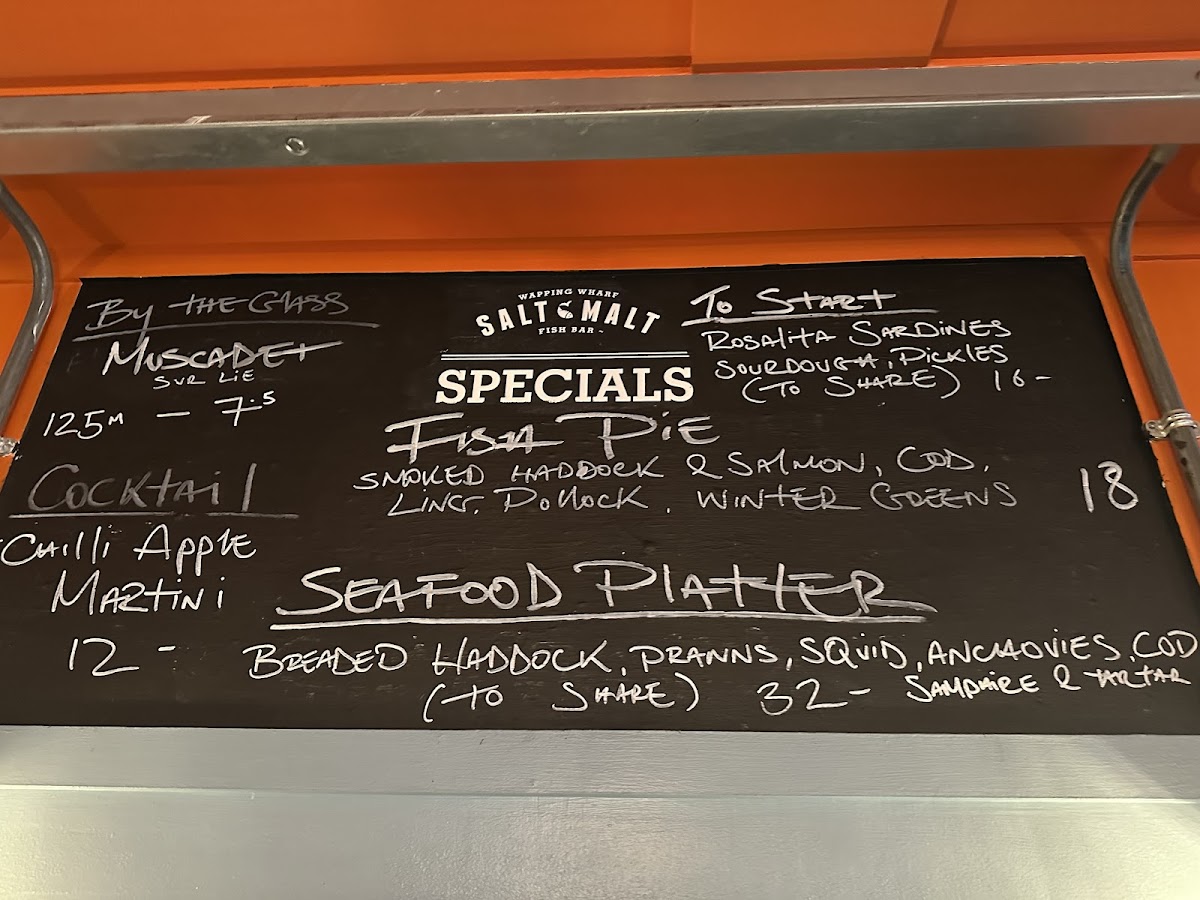 By THE GLASS
MUSCADET
SUR LIE
125M - 7.5
COCKTAIL
CHILLI APPLE
MARTINI
12 -
WAPPING WHARF
SALT & MALT
FISH BAR
SPECIALS
TO START
ROSALITA SARDINES
SOURDOUGH, PICKLES
(TO SHARE) 16 -
FISH PIE
SMOKED HADDOCK & SALMON, COD,
LING, POLLOCK, WINTER GREENS 18
SEAFOOD PLATTER
BREADED HADDOCK, PRAWNS, SQUID, ANCHOVIES, COD
(TO SHARE) 32 - SAMPHIRE & TARTAR